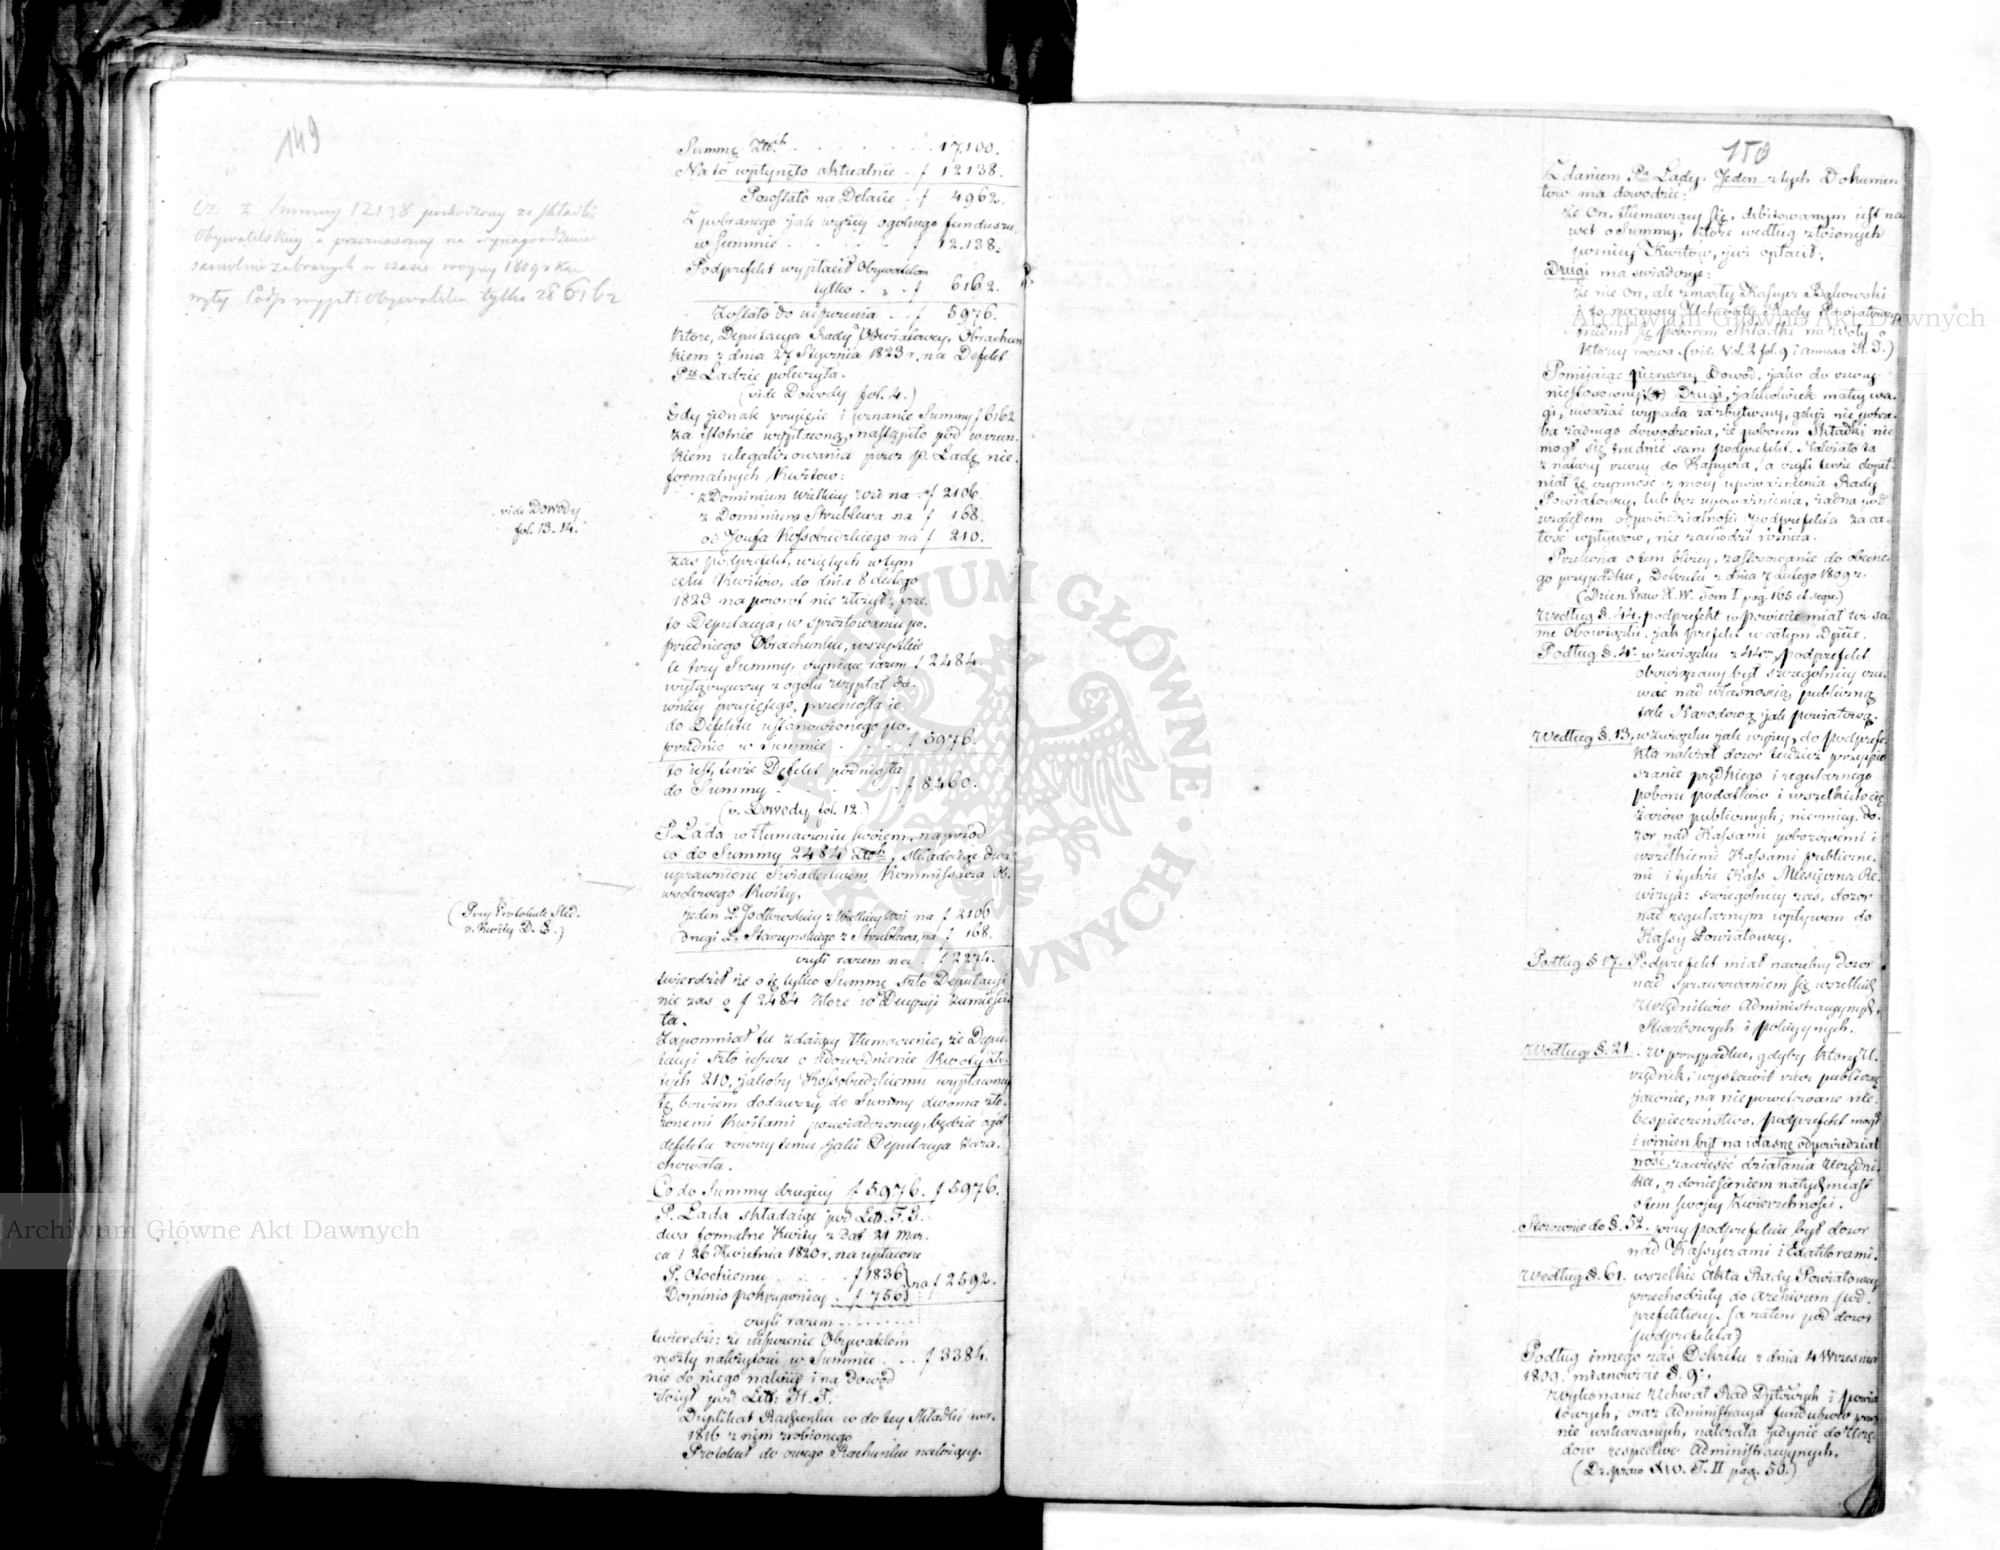 149
z Summy 12138 pochodzącey ze składki
Obywatelskiey a przeznaczoney na wynagrodzenie
zabranych w czasie woyny 1809 roku
Obywatelom tylko zł 6162
Summę Złt.
17.100.
Na to wpłynęło aktualnie . f 12138.
Pozostało na Delacie . f 4962.
Z pobranego jak wyżey ogólnego funduszu
w Summie . . . f 12.138.
Podprefekt wypłacił Obywatelom
tylko . . f 6162.
Zostało do uiszczenia . . f 5976.
które, Deputacya Rady Powiatowey, Obrachun
kiem z dnia 27 Stycznia 1823 r. na Defekt
P. Ladzie policzyła.
(vide Dowody fol. 4.)
Gdy jednak przyjęcie i uznanie Summy f 6162
za istotnie wypłaconą, nastąpiło pod warun-
kiem ulegalizowania przez P. Ladę nie-
formalnych Kwitów:
z Dominium Wielkiey Woli na f 2106.
z Dominium Strublewa na f 168.
od Józefa Kossobudzkiego na f 210.
vide Dowody
fol. 13. 14.
zaś podprefekt, wziętych w tym
celu Kwitów, do dnia 8 Lutego
1823 na powrot nie złożył; prze-
to Deputacya, w sprostowaniu po-
przedniego Obrachunku, wszystkie
te trzy Summy, czyniące razem f 2484.
wyłączywszy z ogółu wypłat da-
wniey przyjętego, przeniosła je
do Defektu ustanowionego po-
przednio w Summie . . . f 5976.
to jest, tenże Defekt podniosła
do Summy . . . f 8460.
(v. Dowody fol. 12.)
P. Lada w tłumaczeniu swoiem, naprzód
co do Summy 2484 Złt., składaiąc dwa
uprawnione Świadectwem Kommissarza Ob-
wodowego Kwity,
(Przy Protokule Sled.
v. Kwity D. E.)
jeden P. Jodłowskiey z Wielkiey Woli na f 2106
drugi P. Starzyńskiego z Strublewa, na f 168.
czyli razem na f 2274.
twierdził że o tę tylko Summę szło Deputacyi
nie zaś o f 2484 które w Decyzyi zamieści-
ła.
Zapomniał tu zdaiący tłumaczenie, że Depu-
tacyi szło jeszcze o udowodnienie Kwoty Zło-
tych 210, jakoby Kossobudzkiemu wypłaconey
tę bowiem dodawszy do Summy dwoma zło-
żonemi Kwitami poświadczoney, będzie ogół
defektu równy temu jaki Deputacya zara-
chowała.
Co do Summy drugiey f 5976. f 5976.
P. Lada składaiąc pod Litt. F. G.
dwa formalne Kwity z Dat 21 Mar-
ca i 26 Kwietnia 1820 r. na wypłacone
P. Ołockiemu . . . f 1836
Dominio pokrzywnicy . f 756 na f 2592.
czyli razem . . .
twierdzi: że uiszczenie Obywatelom
reszty należytości w Summie . . f 3384.
nie do niego należy i na dowód
złożył pod Litt: H. J.
Duplikat Rachunku w do tey Składki w r.
1816 z nim zrobionego
Protokuł do owego Rachunku należący.
150
Zdaniem Pa Lady. Jeden z tych Dokumen
tów ma dowodzić:
że On, tłumaczący się, debitowanym iest na
wet o Summy, które według złożonych
później Kwitów, już opłacił,
Drugi ma świadczyć:
że nie On, ale zmarły Kassyer Bukowski
z mocy Uchwały Rady Powiatowey,
trudnił się poborem Składki na Woły o
których mowa. (vide Vol. 2 fol. 9 i annexa H. J.)
Pomijaiąc pierwszy Dowód, jako do rzeczy
niestosowny; Drugi, jakkolwiek małey wa-
gi, uważać wypada za zbyteczny, gdyż nie potrze-
ba żadnego dowodzenia, że poborem Składki nie
mógł się trudnić sam podprefekt. Należało to
z natury rzeczy do Kassyera, a czyli tenże dopeł-
niał tę czynność z mocy upoważnienia Rady
Powiatowey, lub bez upoważnienia, żadna pod
względem odpowiedzialności Podprefekta za ca-
łość wpływów, nie zachodzi różnica.
Przekona o tem bliżey, zastosowanie do obecne-
go przypadku, Dekretu z dnia 7 Lutego 1809 r.
(Dzien. Praw X. W. Tom I pag. 165 et sequ.)
Według §. 44. podprefekt w powiecie miał też sa-
me Obowiązki jak Prefekt w całym Dptcie.
Podług §. 4. w związku z 44m, Podprefekt
obowiązany był szczególniey czu-
wać nad własnością publiczną
tak Narodową jak powiatową.
Według §. 13, w związku jak wyżey, do podprefe-
kta należał dozór tudzież przyspie
szanie prędkiego i regularnego
poboru podatków i wszelkich cię
żarów publicznych; niemniey, do-
zór nad Kassami poborowemi i
wszelkiemi Kassami publiczne-
mi i tychże Kass Miesięczna Re-
wizya: szczególniey zaś, dozór
nad regularnym wpływem do
Kassy Powiatowey.
Podług §. 17. Podprefekt miał naczelny dozór
nad sprawowaniem się wszelkich
Urzędników Administracyjnych,
Skarbowych i policyjnych.
Według §. 21. w przypadku, gdyby który U-
rzędnik, wystawił rzecz publiczną
jawnie, na niepowetowane nie-
bespieczeństwo, podprefekt mógł
i winien był na własną odpowiedzial
ność, zawiesić działania Urzędni-
ka, z doniesieniem natychmiast
o tem swojey Zwierzchności.
Stosownie do §. 52. przy podprefekcie był dozór
nad Kassyerami i Exaktorami.
Według §. 61. wszelkie Akta Rady Powiatowey
przechodziły do Archiwum pod-
prefektury. (a zatem pod dozór
podprefekta)
Podług innego zaś Dekretu z dnia 4 Września
1809, mianowicie §. 9.
Wykonanie Uchwał Rad Dptowych i powia
towych, oraz Administracya funduszów przez
nie wskazanych, należała jedynie do Urzę-
dów respective Administracyjnych.
(Dz. praw X. W. T. II pag. 50.)
Archiwum Główne Akt Dawnych
Archiwum Główne Akt Dawnych
ARCHIWUM GŁÓWNE AKT DAWNYCH